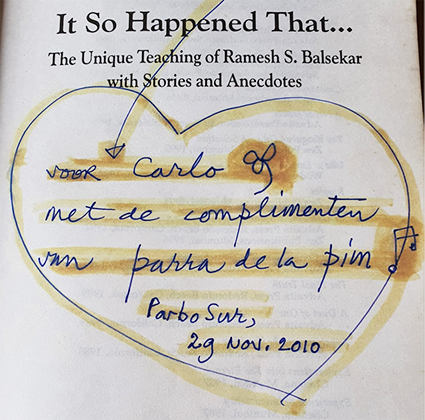 It So Happened That...
The Unique Teaching of Ramesh S. Balsekar
with Stories and Anecdotes
voor Carlo
met de complimenten
van parra de la pim
Parbo Sur,
29 Nov. 2010